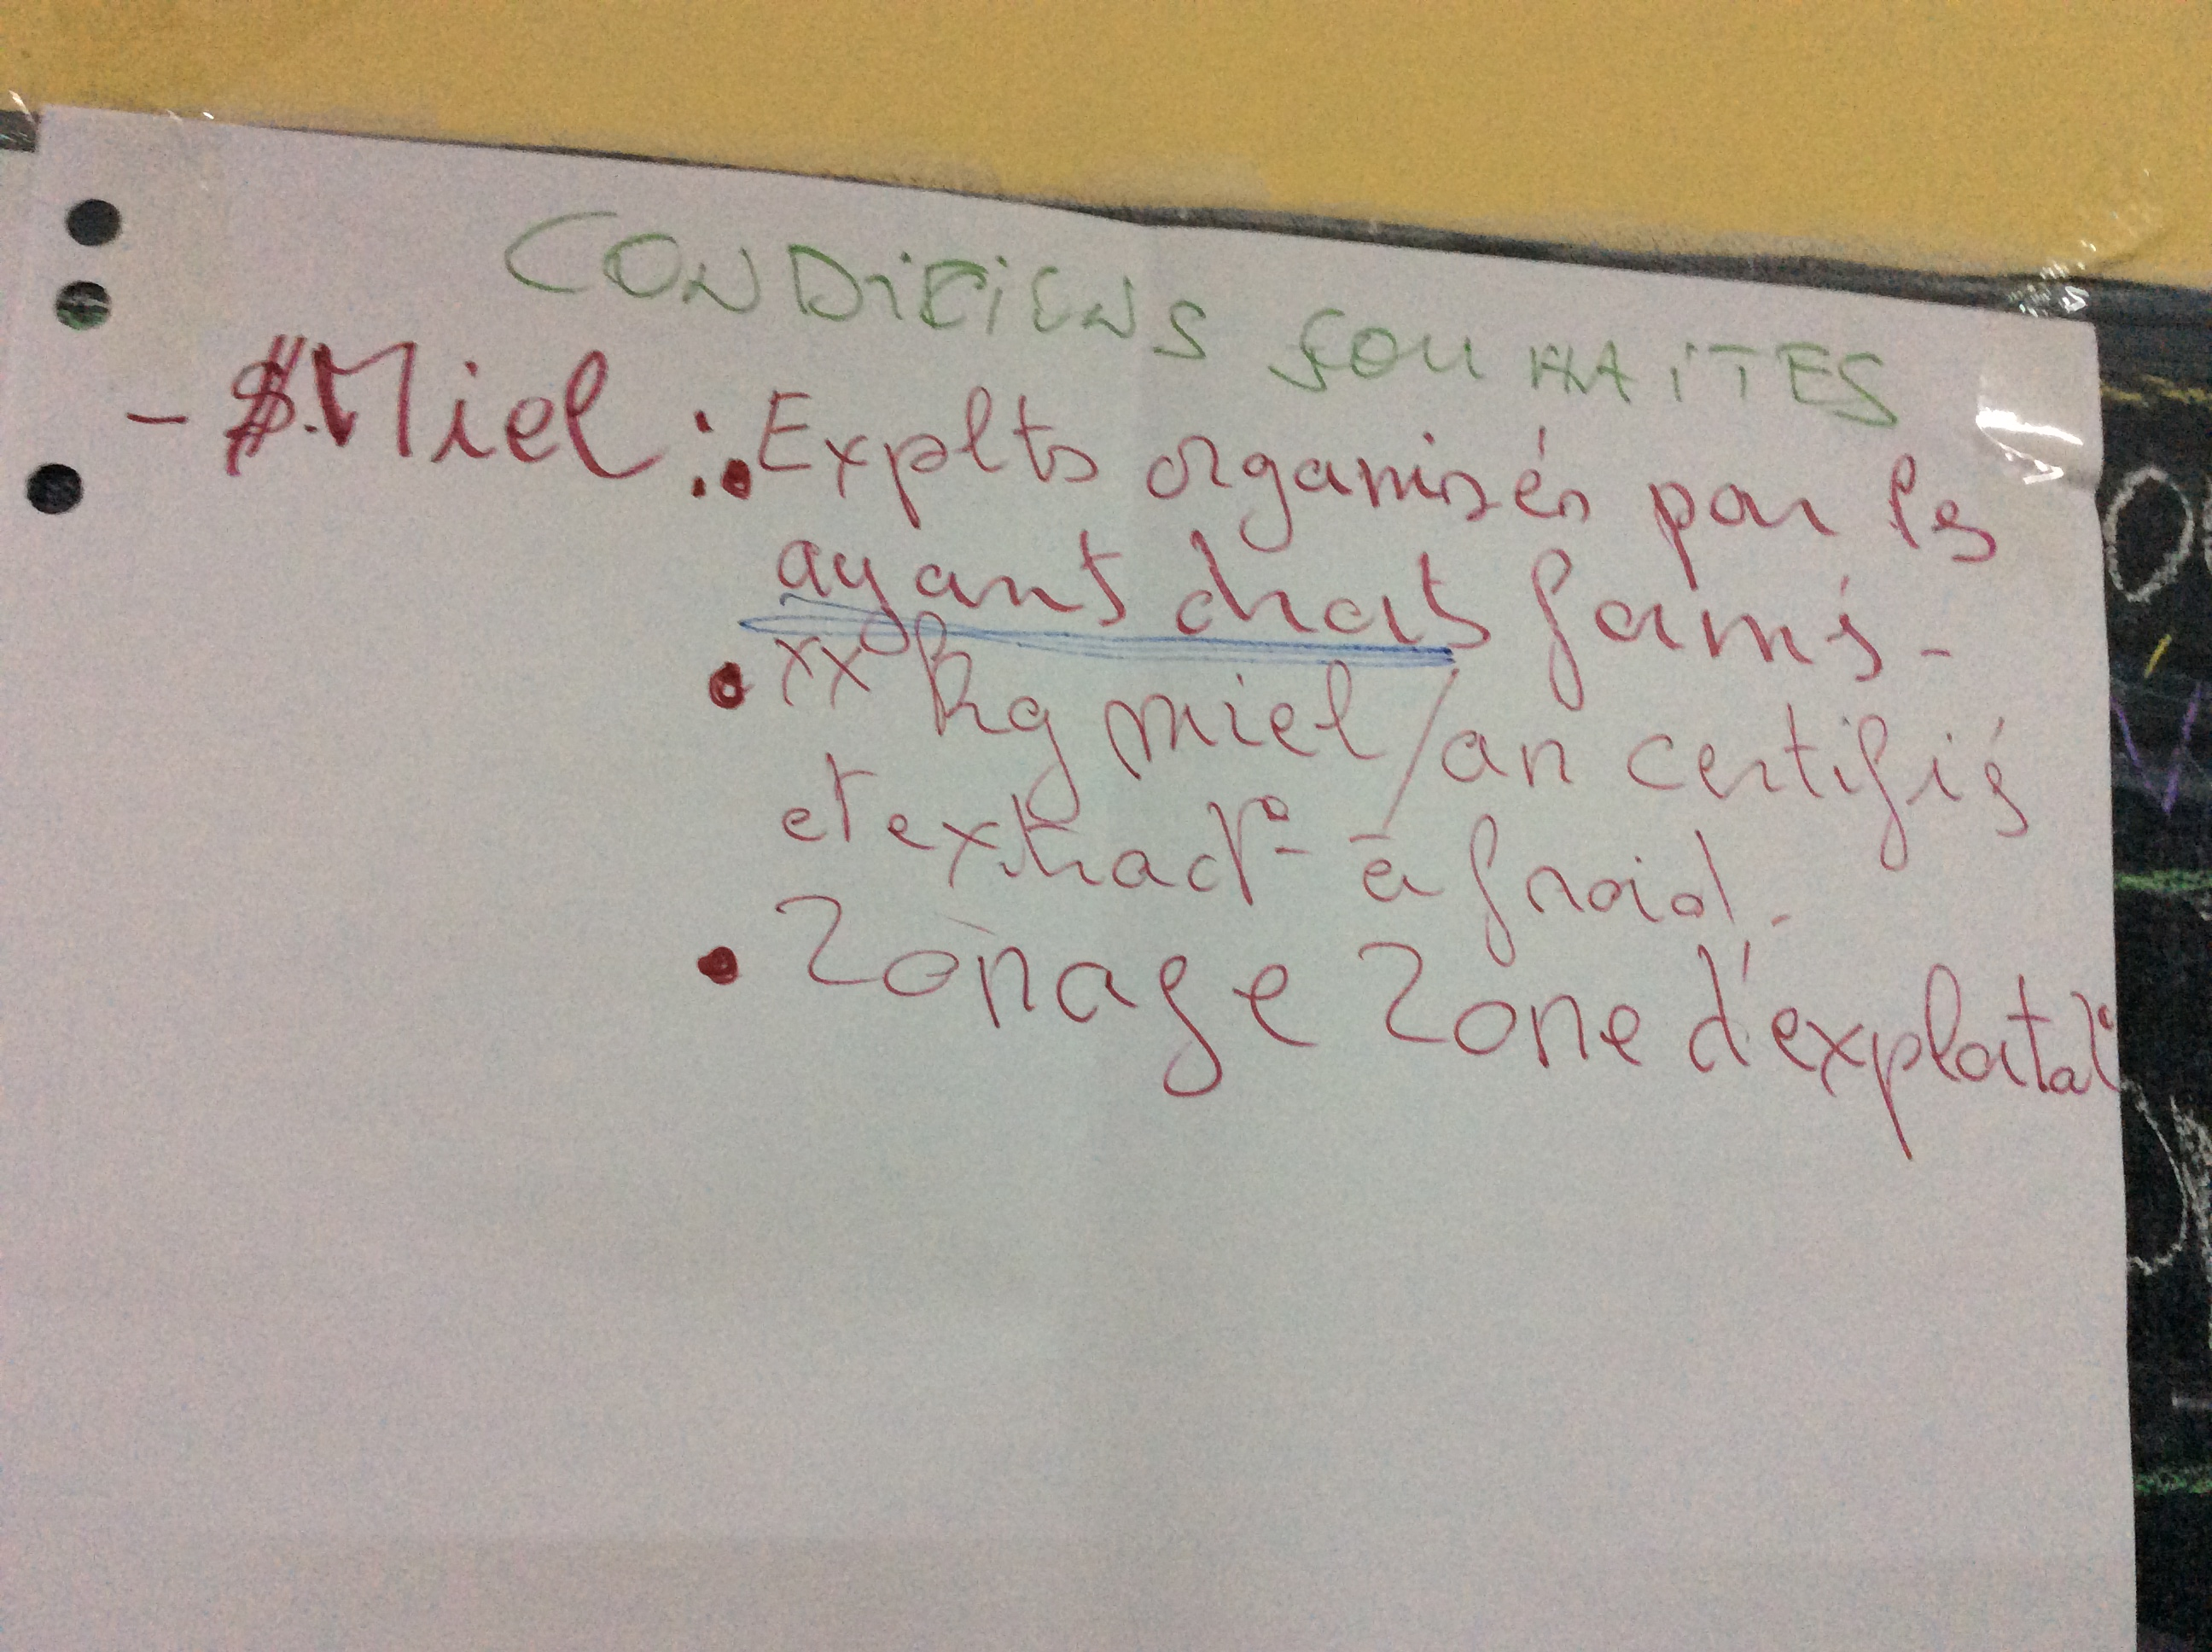 CONDITIONS SOUHAITES
- Miel : • Explts organisés par les
ayant droits formés -
• xx kg miel/an certifiés
et extract° à froid.
• Zonage Zone d'exploitat°